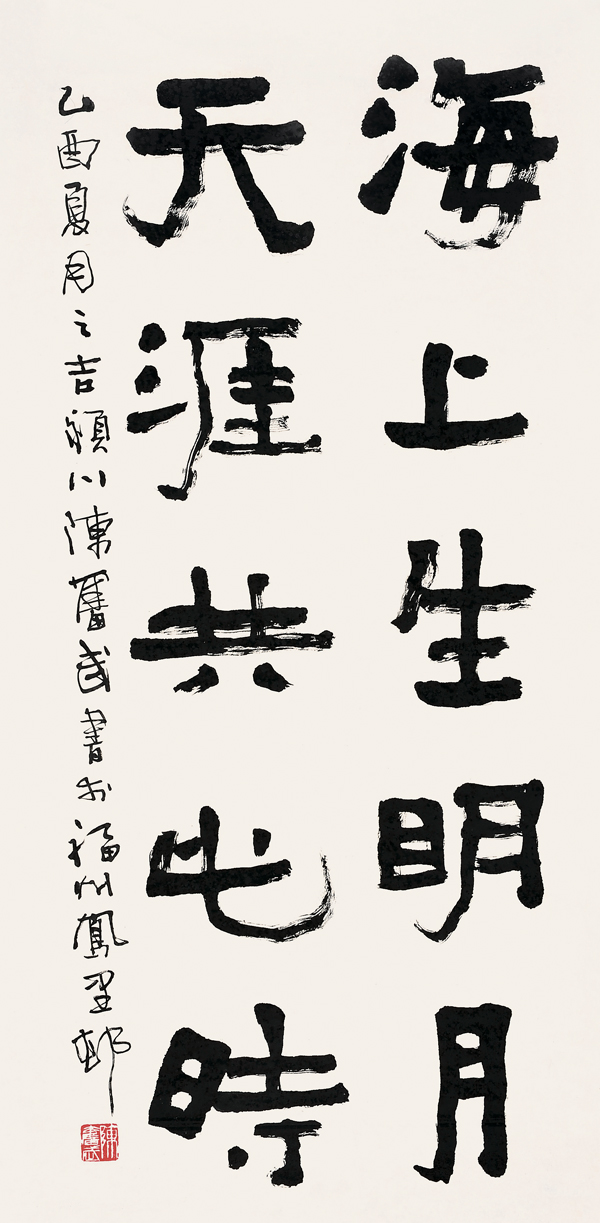 海上生明月
天涯共此時
乙酉夏月之吉潁川陳奮武書於福州鳳邨
陳奮武